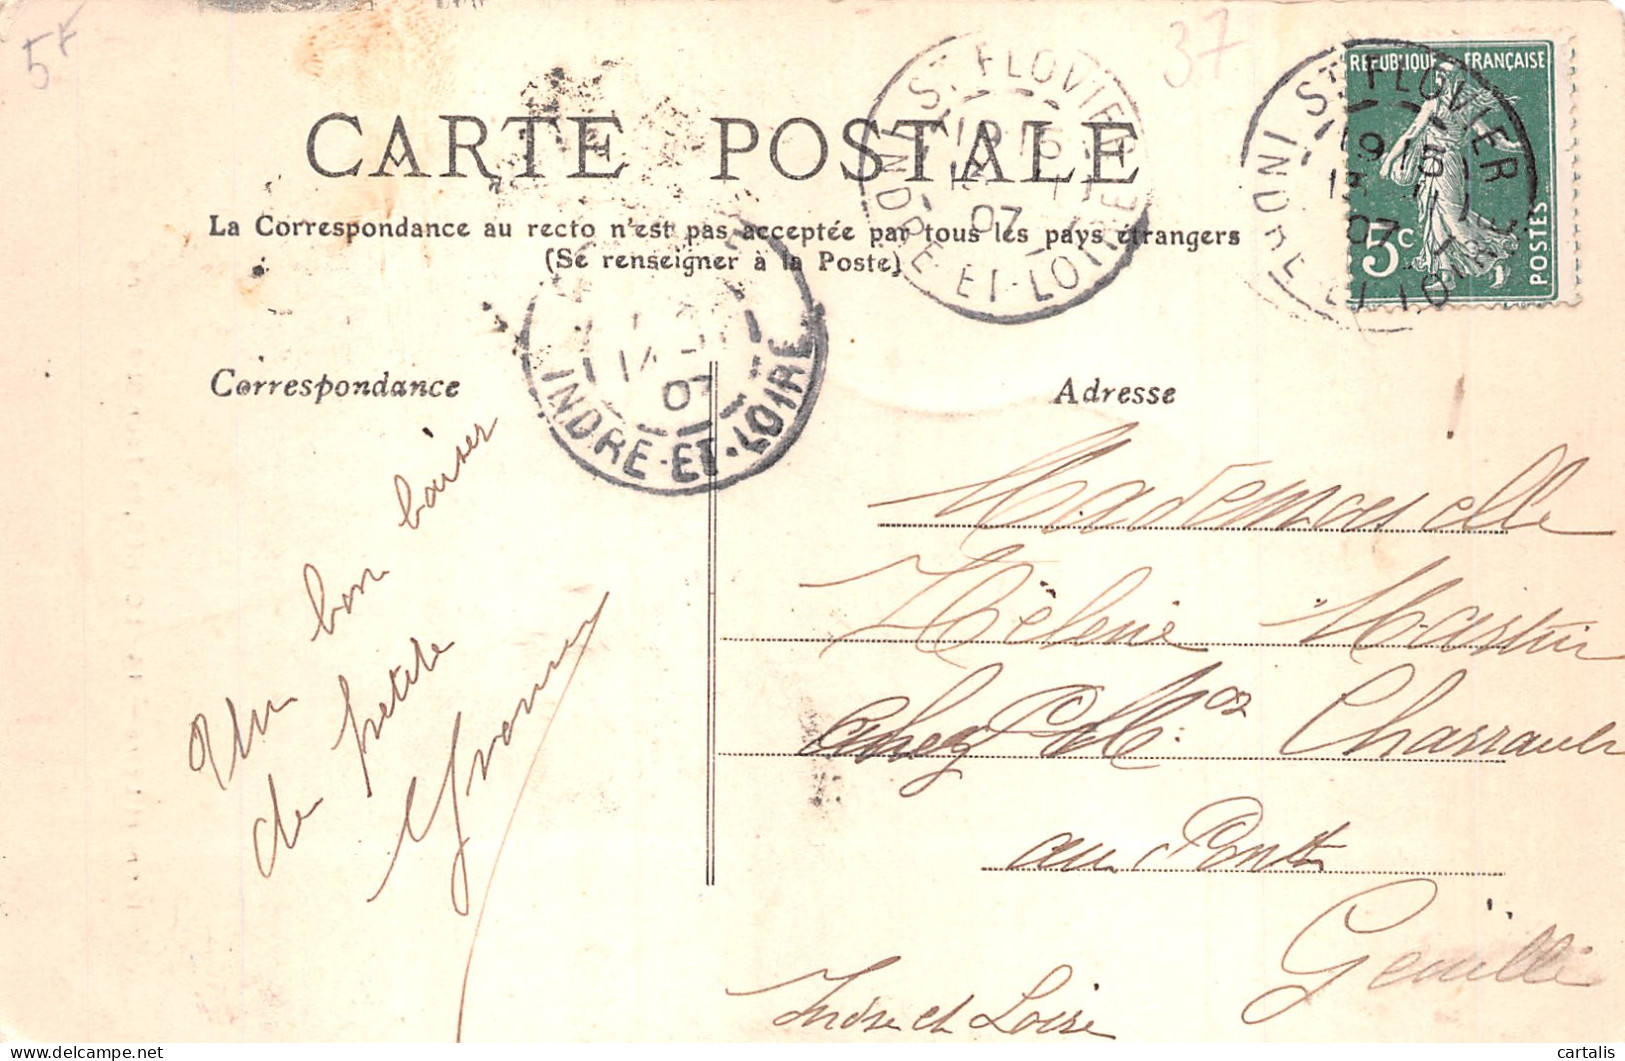 5f
37
RÉPUBLIQUE FRANÇAISE
5c
POSTES
ST FLOVIER
19 15
07
INDRE-ET-LOIRE
ST FLOVIER
19 18
07
INDRE-ET-LOIRE
CARTE POSTALE
La Correspondance au recto n'est pas acceptée par tous les pays étrangers
(Se renseigner à la Poste)
07
INDRE-ET-LOIRE
Correspondance
Adresse
Un bon baiser
de petite
Yvonne
Mademoiselle
Hélène Martin
chez Charrault
au Pont
Genillé
Indre et Loire
cartalis